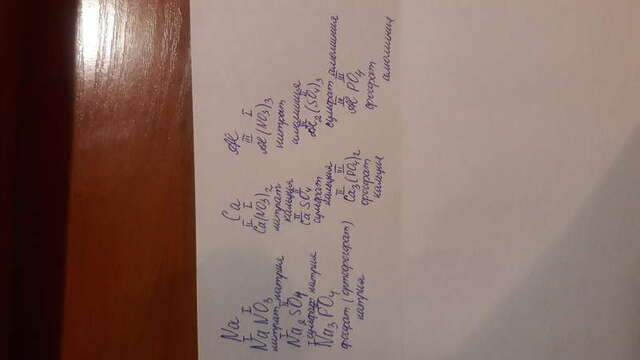 Na
I I
NaNO3
нитрат натрия
I II
Na2SO4
сульфат натрия
I III
Na3PO4
фосфат (ортофосфат)
натрия
Ca
II I
Ca(NO3)2
нитрат
кальция
II II
CaSO4
сульфат
кальция
II III
Ca3(PO4)2
фосфат
кальция
Al
III I
Al(NO3)3
нитрат
алюминия
III II
Al2(SO4)3
сульфат алюминия
III III
AlPO4
фосфат
алюминия